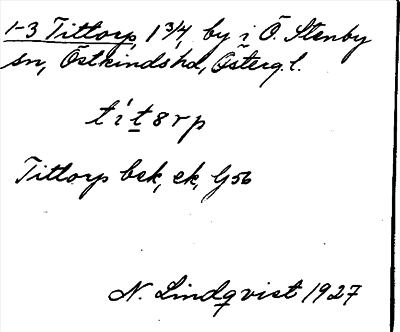 1-3 Tittorp, 1 3/4, by i Ö. Stenby
sn, Östkinds hd, Österg. l.
títorp
Tittorp bek, ek, G 56
N. Lindqvist 1927